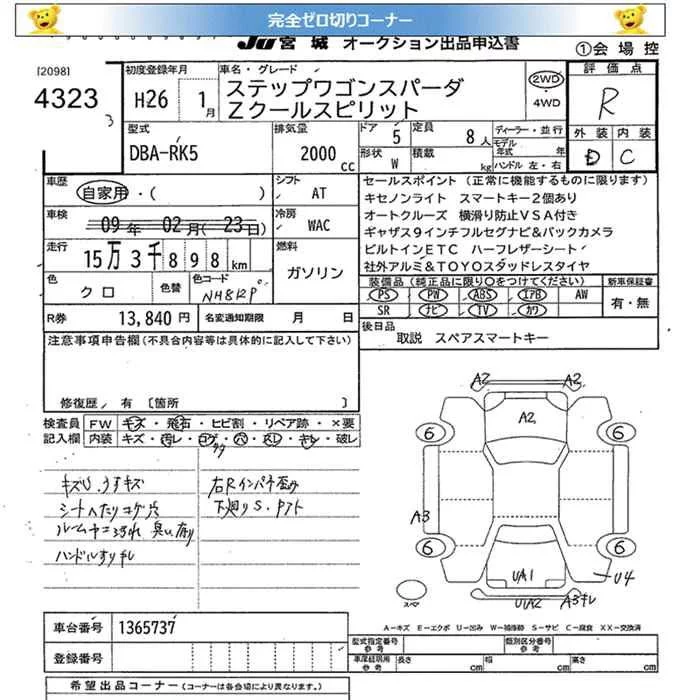 完全ゼロ切りコーナー
JU宮城 オークション出品申込書
①会場控
[2098]
4323
3
初度登録年月
H26 1月
車名・グレード
ステップワゴンスパーダ
Zクールスピリット
2WD
・4WD
評価点
R
外装 内装
D C
型式
DBA-RK5
排気量
2000cc
ドア 5 定員 8人
形状 W 積載 kg
ディーラー・並行
モデル年式 年
ハンドル 左・右
車歴
自家用・( )
車検
09年 02月(23日)
走行
15万3千898km
色
クロ
色替
色コード
NH812P
シフト
AT
冷房
WAC
燃料
ガソリン
セールスポイント (正常に機能するものに限ります)
キセノンライト スマートキー2個あり
オートクルーズ 横滑り防止VSA付き
ギャザズ9インチフルセグナビ&バックカメラ
ビルトインETC ハーフレザーシート
社外アルミ&TOYOスタッドレスタイヤ
装備品(純正品に限り○をつけてください)
PS PW ABS エアB AW
SR ナビ TV カワ
新車保証書
有・無
R券 13,840円 名変通知期限 月 日
後日品
取説 スペアスマートキー
注意事項申告欄(不具合内容等は具体的に記入して下さい)
修復歴, 有 〔箇所 〕
検査員記入欄
FW キズ・飛石・ヒビ割・リペア跡・×要
内装 キズ・汚レ・コゲ・穴・スレ・キレ・破レ
キズU.うすキズ
シートへたりコゲ穴
ルームヤニ汚れ 臭い有り
ハンドルすりキレ
右Rインパネ歪み
下廻りS.
A2 A2
A2
6 6
A3
6 6
UA1 U4
U1A2 A3キレ
スペア
A-キズ E-エクボ U-凹み W-補修跡 S-サビ C-腐食 XX-交換済
車台番号 1365737
登録番号
型式指定番号 参考
類別区分番号 参考
車庫証明用 参考 長さ cm 幅 cm 高さ cm
希望出品コーナー(コーナーは各会場により異なります。)